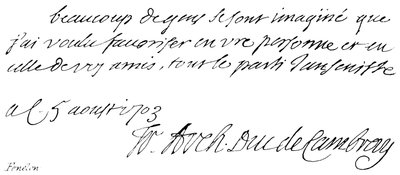 beaucoup de gens se sont imaginé que
j'ai voulu favoriser en vre personne et en
celle de vos amis, tout le parti Janseniste
a C. 5 aoust 1703
Fr. Arch. Duc de Cambray
Fénelon